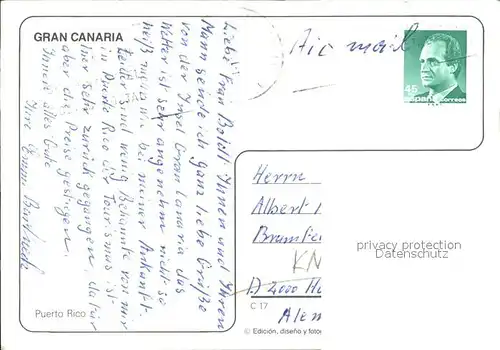 GRAN CANARIA
Liebe Frau Boldt! Ihnen und Ihrem
Mann sende ich ganz liebe Grüße
von der Insel Gran Canaria das
Wetter ist sehr angenehm nicht so
heiß wie bei meiner Ankunft.
Leider sind wenig Bekannte von mir
in Puerto Rico der Tourismus ist
hier sehr zurück gegangen, dafür
aber die Preise gestiegen.
Ihnen alles Gute
Ihre
Puerto Rico
Air mail
45
España correos
Herrn
Albert
KN
D 2000
C 17
Alem
© Edición, diseño y fotog
privacy protection
Datenschutz